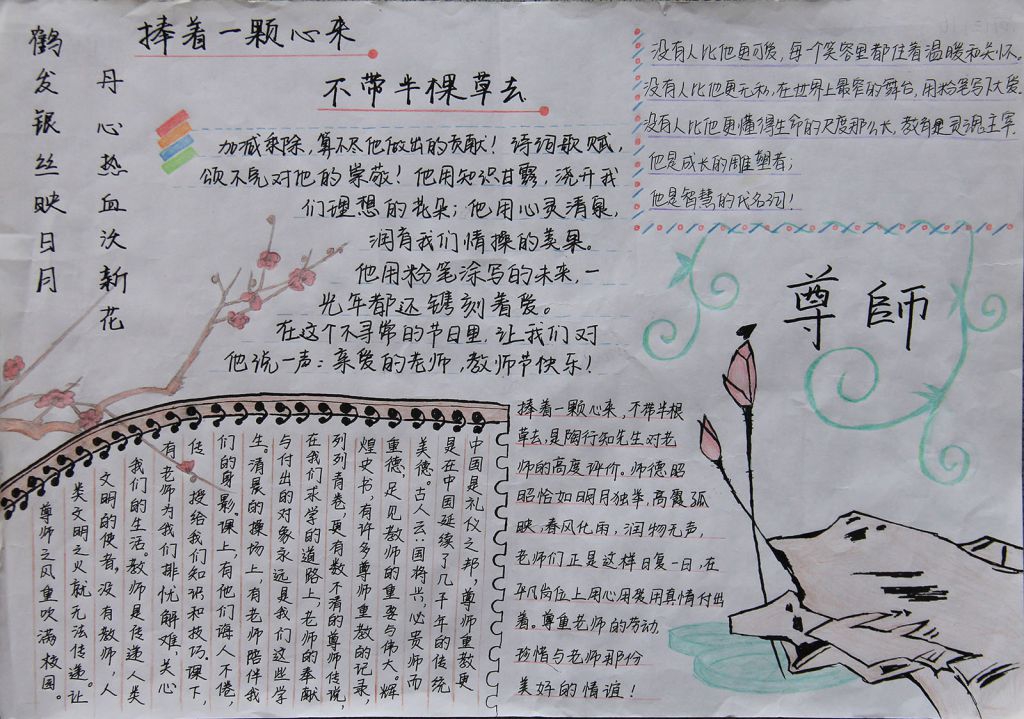 鹤发银丝映日月
丹心热血沃新花
捧着一颗心来
不带半棵草去
加减乘除，算不尽他做出的贡献！诗词歌赋，
颂不完对他的崇敬！他用知识甘露，浇开我
们理想的花朵；他用心灵清泉，
润育我们情操的美果。
他用粉笔涂写的未来，一
光年都还镌刻着爱。
在这个不寻常的节日里，让我们对
他说一声：亲爱的老师，教师节快乐！
没有人比他更可爱，每一个笑容里都住着温暖和关怀。
没有人比他更无私，在世界上最窄的舞台，用粉笔写下大爱.
没有人比他更懂得生命的尺度那么长，教育是灵魂主宰.
他是成长的雕塑者；
他是智慧的代名词！
尊師
中国是礼仪之邦，尊师重教更
是在中国延续了几千年的传统
美德。古人云：国将兴，必贵师而
重德，足见教师的重要与伟大。辉
煌史书，有许多尊师重教的记录，
列列青卷，更有数不清的尊师传说，
在我们求学的道路上，老师的奉献
与付出的对象永远是我们这些学
生。清晨的操场上，有老师陪伴我
们的身影。课上，有他们诲人不倦，
传授给我们知识和技巧。课下，
有老师为我们排忧解难，关心
我们的生活。教师是传递人类
文明的使者。没有教师，人
类文明之火就无法传递。让
尊师之风重吹满校园。
捧着一颗心来，不带半根
草去，是陶行知先生对老
师的高度评价。师德昭
昭恰如明月独举，高霞孤
映，春风化雨，润物无声，
老师们正是这样日复一日，在
平凡岗位上用心用爱用真情付出
着。尊重老师的劳动，
珍惜与老师那份
美好的情谊！